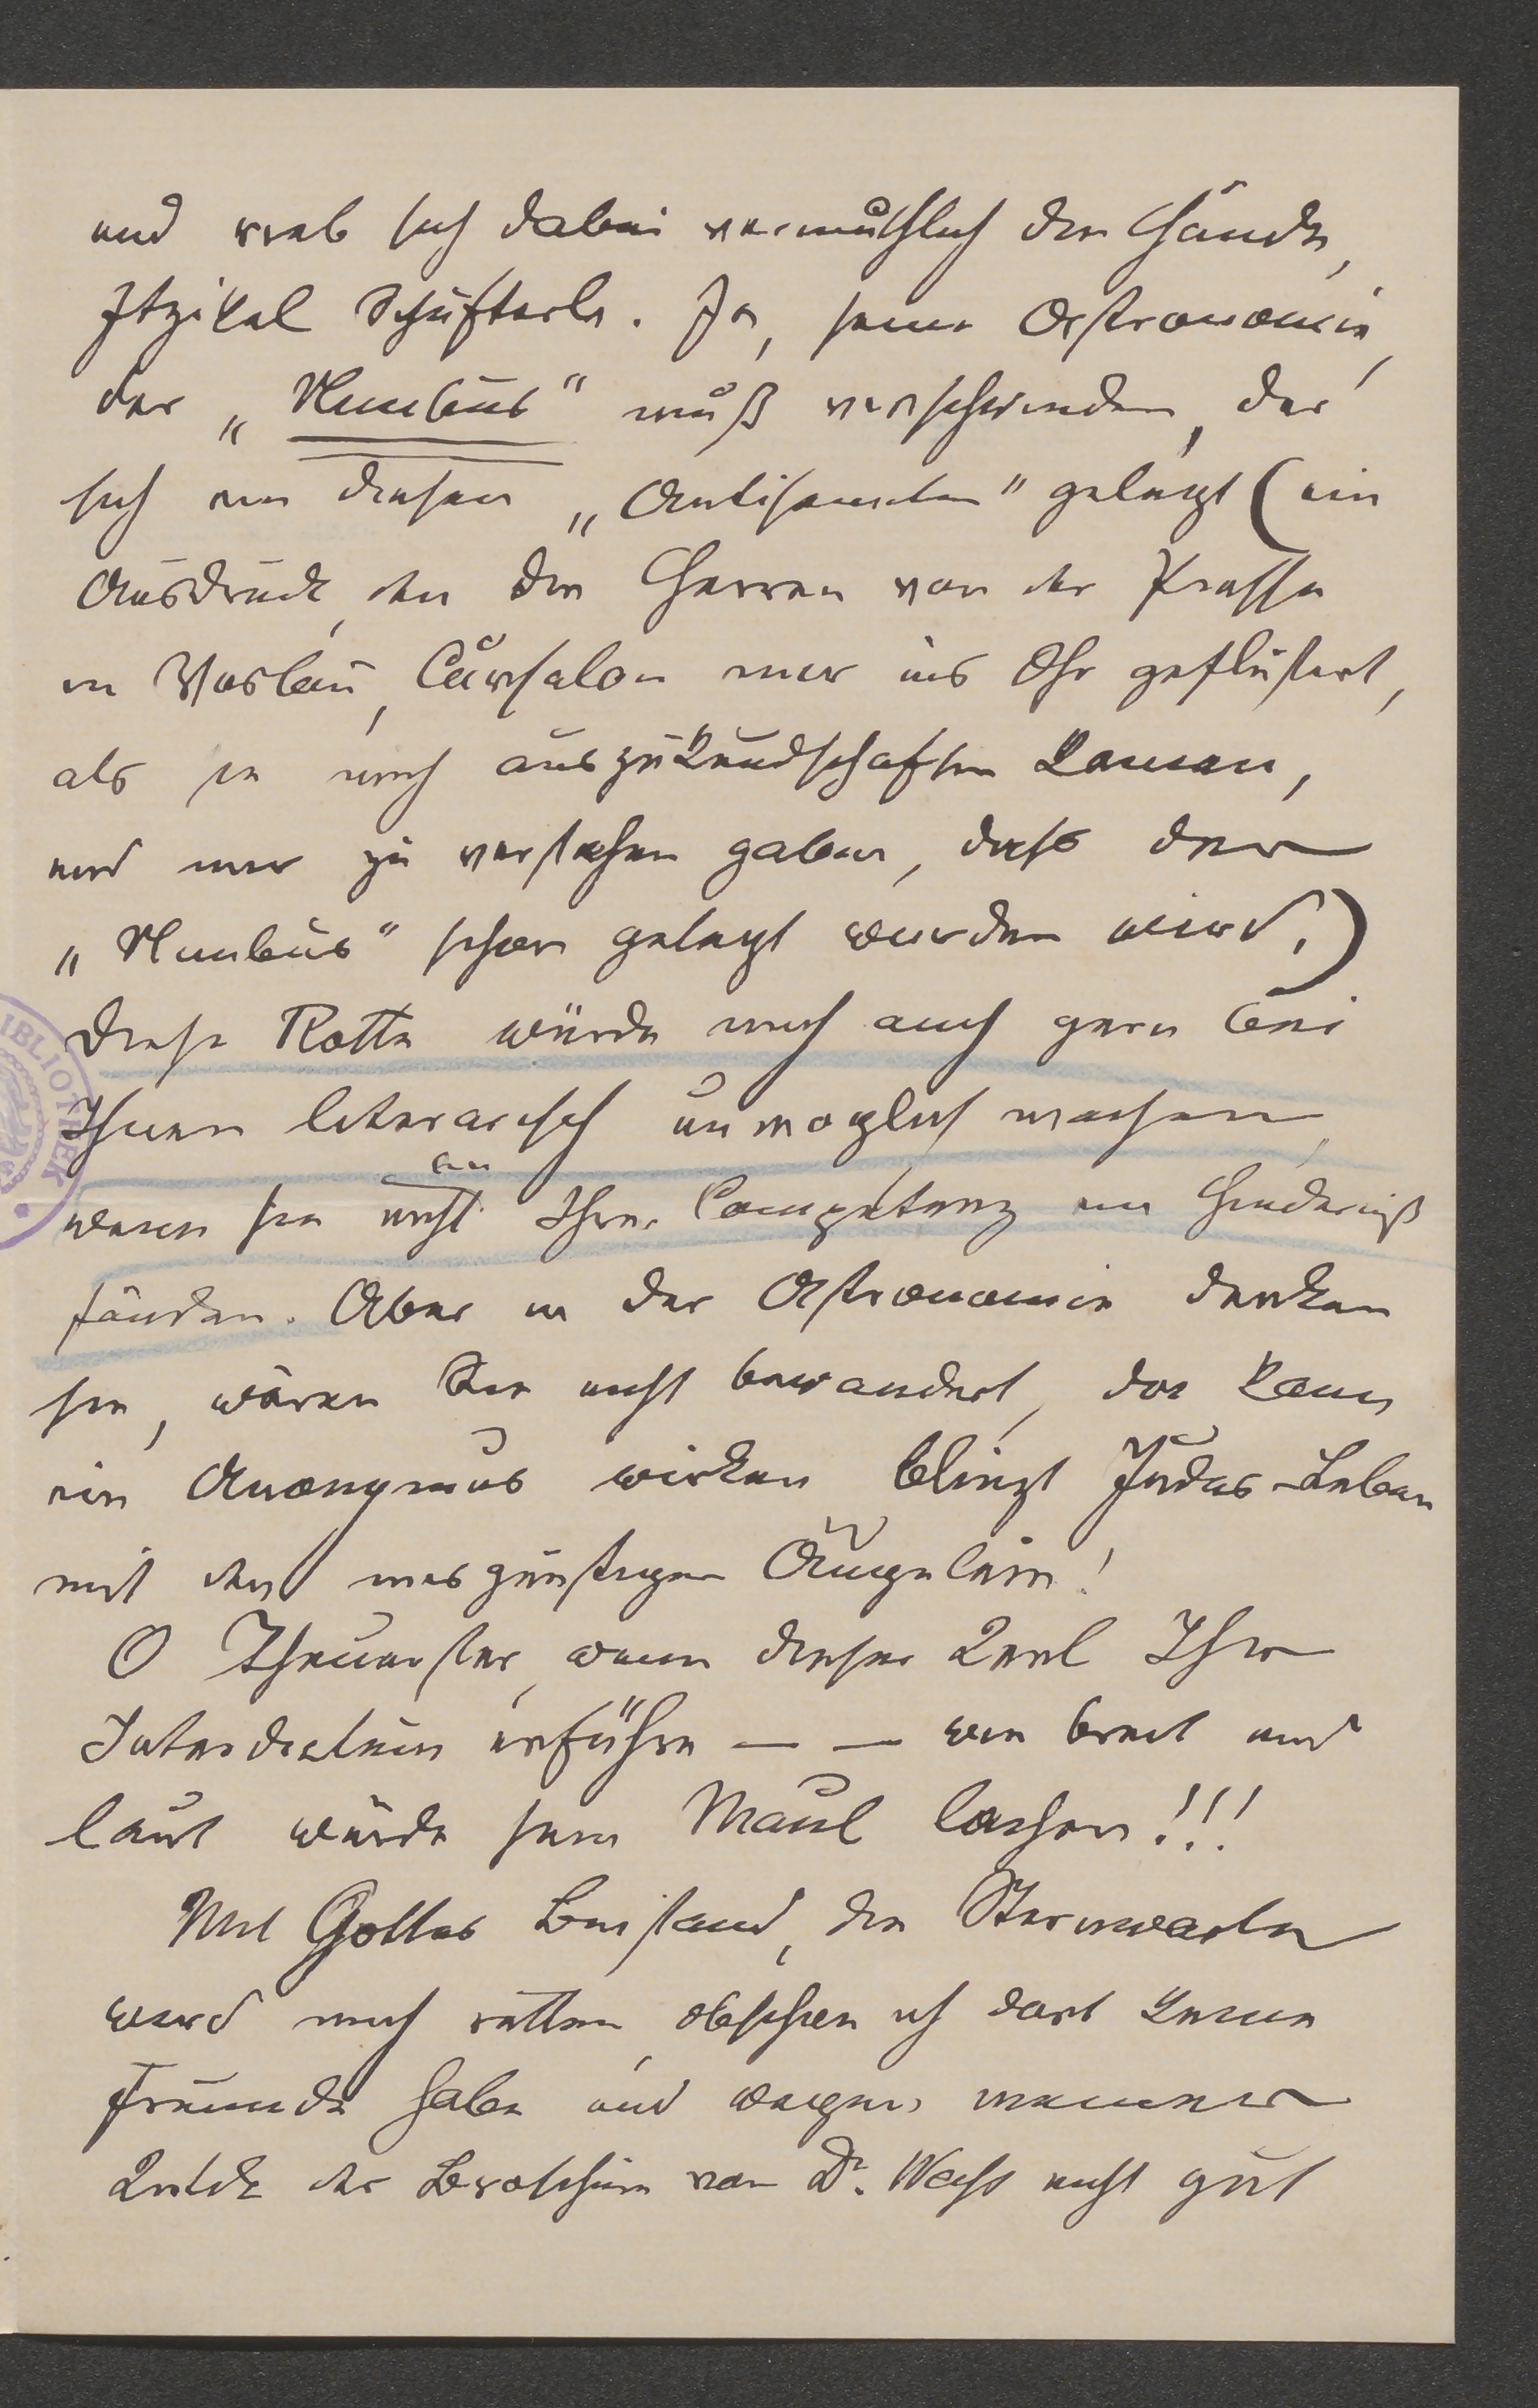 und rieb sich dabei vermuthlich die Hände,
Itzikel Schufterle. Ja, seine Astronomie,
der „Nimbus“ muß verschwinden, der
sich um diesen „Antisemiten“ gelegt (ein
Ausdruck, den die Herren von der Presse
in Vöslau, Cursalon mir ins Ohr geflüstert,
als sie mich auszukundschaften kamen,
und mir zu verstehen gaben, dass der
„Nimbus“ schon gelegt werden wird.)
Diese Rotte würde mich auch gern bei
Ihnen literarisch unmöglich machen,
wenn sie nicht an Ihrer Competenz ein Hinderniß
fänden. Aber in der Astronomie denken
sie, wären Sie nicht bewandert, da kann
ein Anonymus wirken blinzt Judas-Leben
mit den misgünstigen Äugelein!
O Theuerster, wenn dieser Kerl Ihr
Interdictum erführe — — wie breit und
laut würde sein Maul lachen!!!
Mit Gottes Beistand, die Sternwarte
wird mich retten, obschon ich dort keine
Freunde habe und wegen meiner
Kritik der Broschüre von Dr. Weiss nicht gut